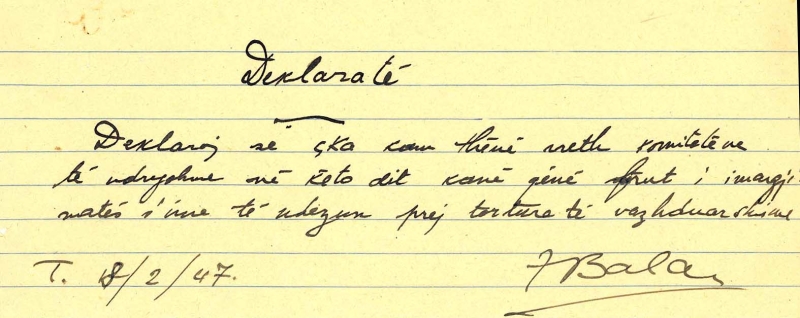 Deklaratë
Deklaroj së çka kam thënë rreth komiteteve
të ndryshme në këto dit kanë qënë frut i imagji-
natës s'ime të ndezun prej torturave të vazhduarshme
T. 18/2/47. Balan